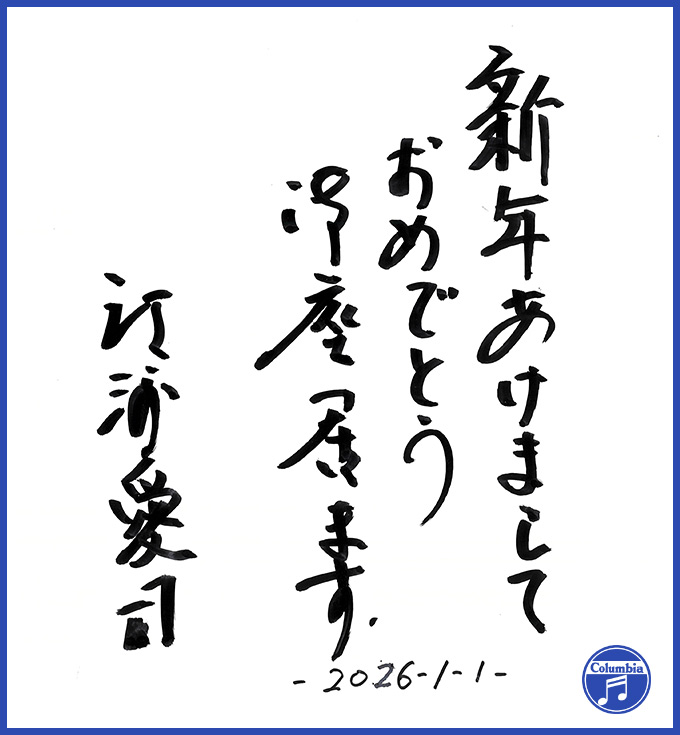 新年あけまして
おめでとう
御座居ます.
愛司
-2026-1-1-
Columbia